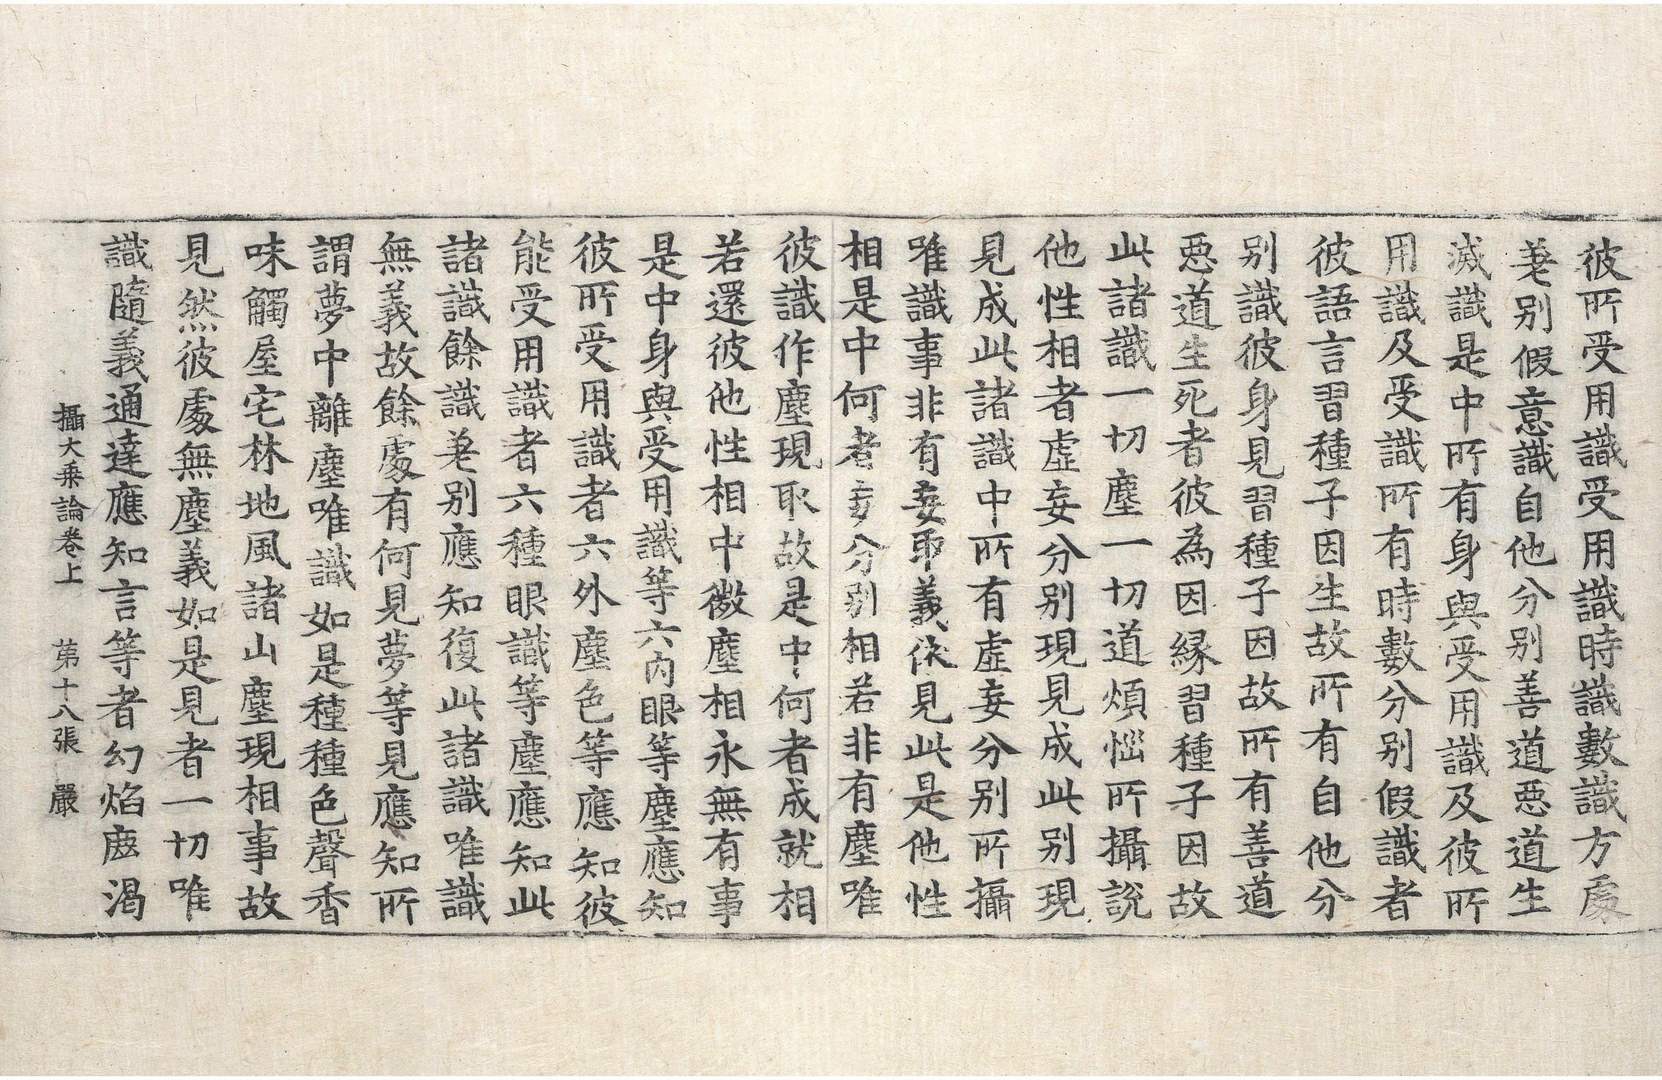 彼所受用識受用識時識數識方處
差别假意識自他分别善道惡道生
滅識是中所有身與受用識及彼所
用識及受識所有時數分别假識者
彼語言習種子因生故所有自他分
别識彼身見習種子因故所有善道
惡道生死者彼為因緣習種子因故
此諸識一切塵一切道煩惱所攝說
他性相者虛妄分别現見成此别現
見成此諸識中所有虛妄分别所攝
唯識事非有妄取義依見此是他性
相是中何者妄分别相若非有塵唯
彼識作塵現取故是中何者成就相
若還彼他性相中微塵相永無有事
是中身與受用識等六內眼等塵應知
彼所受用識者六外塵色等應知彼
能受用識者六種眼識等塵應知此
諸識餘識差别應知復此諸識唯識
無義故餘處有何見夢等見應知所
謂夢中離塵唯識如是種種色聲香
味觸屋宅林地風諸山塵現相事故
見然彼處無塵義如是見者一切唯
識隨義通達應知言等者幻焰鹿渴
攝大乘論卷上 第十八張 嚴